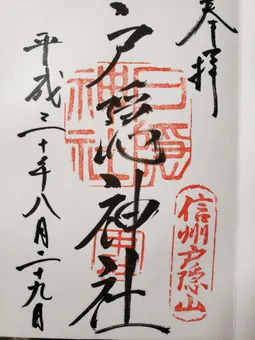 奉拝
戸隠神社
平成三十年八月二十九日
戸隠神社
信州戸隠山